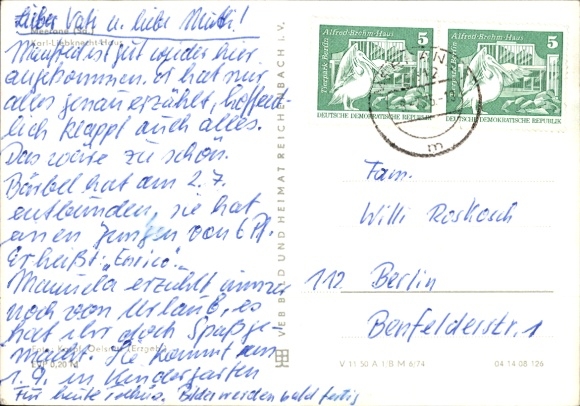 Lieber Vati u. liebe Mutti!
Meerane (Sa.)
Karl-Liebknecht-Haus
Manfred ist gut wieder hier
angekommen. er hat nur
alles genau erzählt, hoffent-
lich klappt auch alles.
Das wäre zu schön.
Bärbel hat am 2.7.
entbunden, sie hat
einen Jungen von 6 Pf.
Er heißt: „Enrico".
Manuela erzählt immer
noch von Urlaub, es
hat ihr doch Spaß ge-
macht. Sie kommt am
1.9. in Kindergarten
Für heute Bilder werden bald fertig
Oelsnitz (Erzgeb.)
0,20 M
VEB BILD UND HEIMAT REICHENBACH i. V.
Alfred-Brehm-Haus 5
Tierpark Berlin
DEUTSCHE DEMOKRATISCHE REPUBLIK
Alfred-Brehm-Haus 5
Tierpark Berlin
DEUTSCHE DEMOKRATISCHE REPUBLIK
m
Fam.
Willi Roskosch
112 Berlin
Benfelderstr. 1
V 11 50 A 1 B M 6/74 04 14 08 126